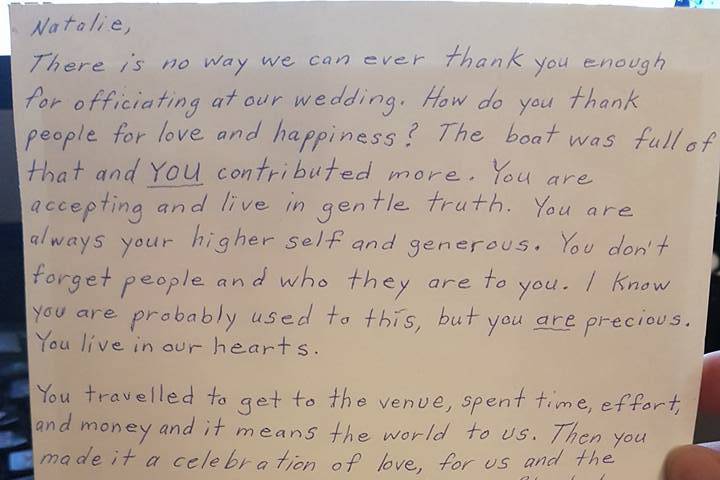 Natalie,
There is no way we can ever thank you enough
for officiating at our wedding. How do you thank
people for love and happiness? The boat was full of
that and YOU contributed more. You are
accepting and live in gentle truth. You are
always your higher self and generous. You don't
forget people and who they are to you. I know
you are probably used to this, but you are precious.
You live in our hearts.
You travelled to get to the venue, spent time, effort,
and money and it means the world to us. Then you
made it a celebration of love, for us and the